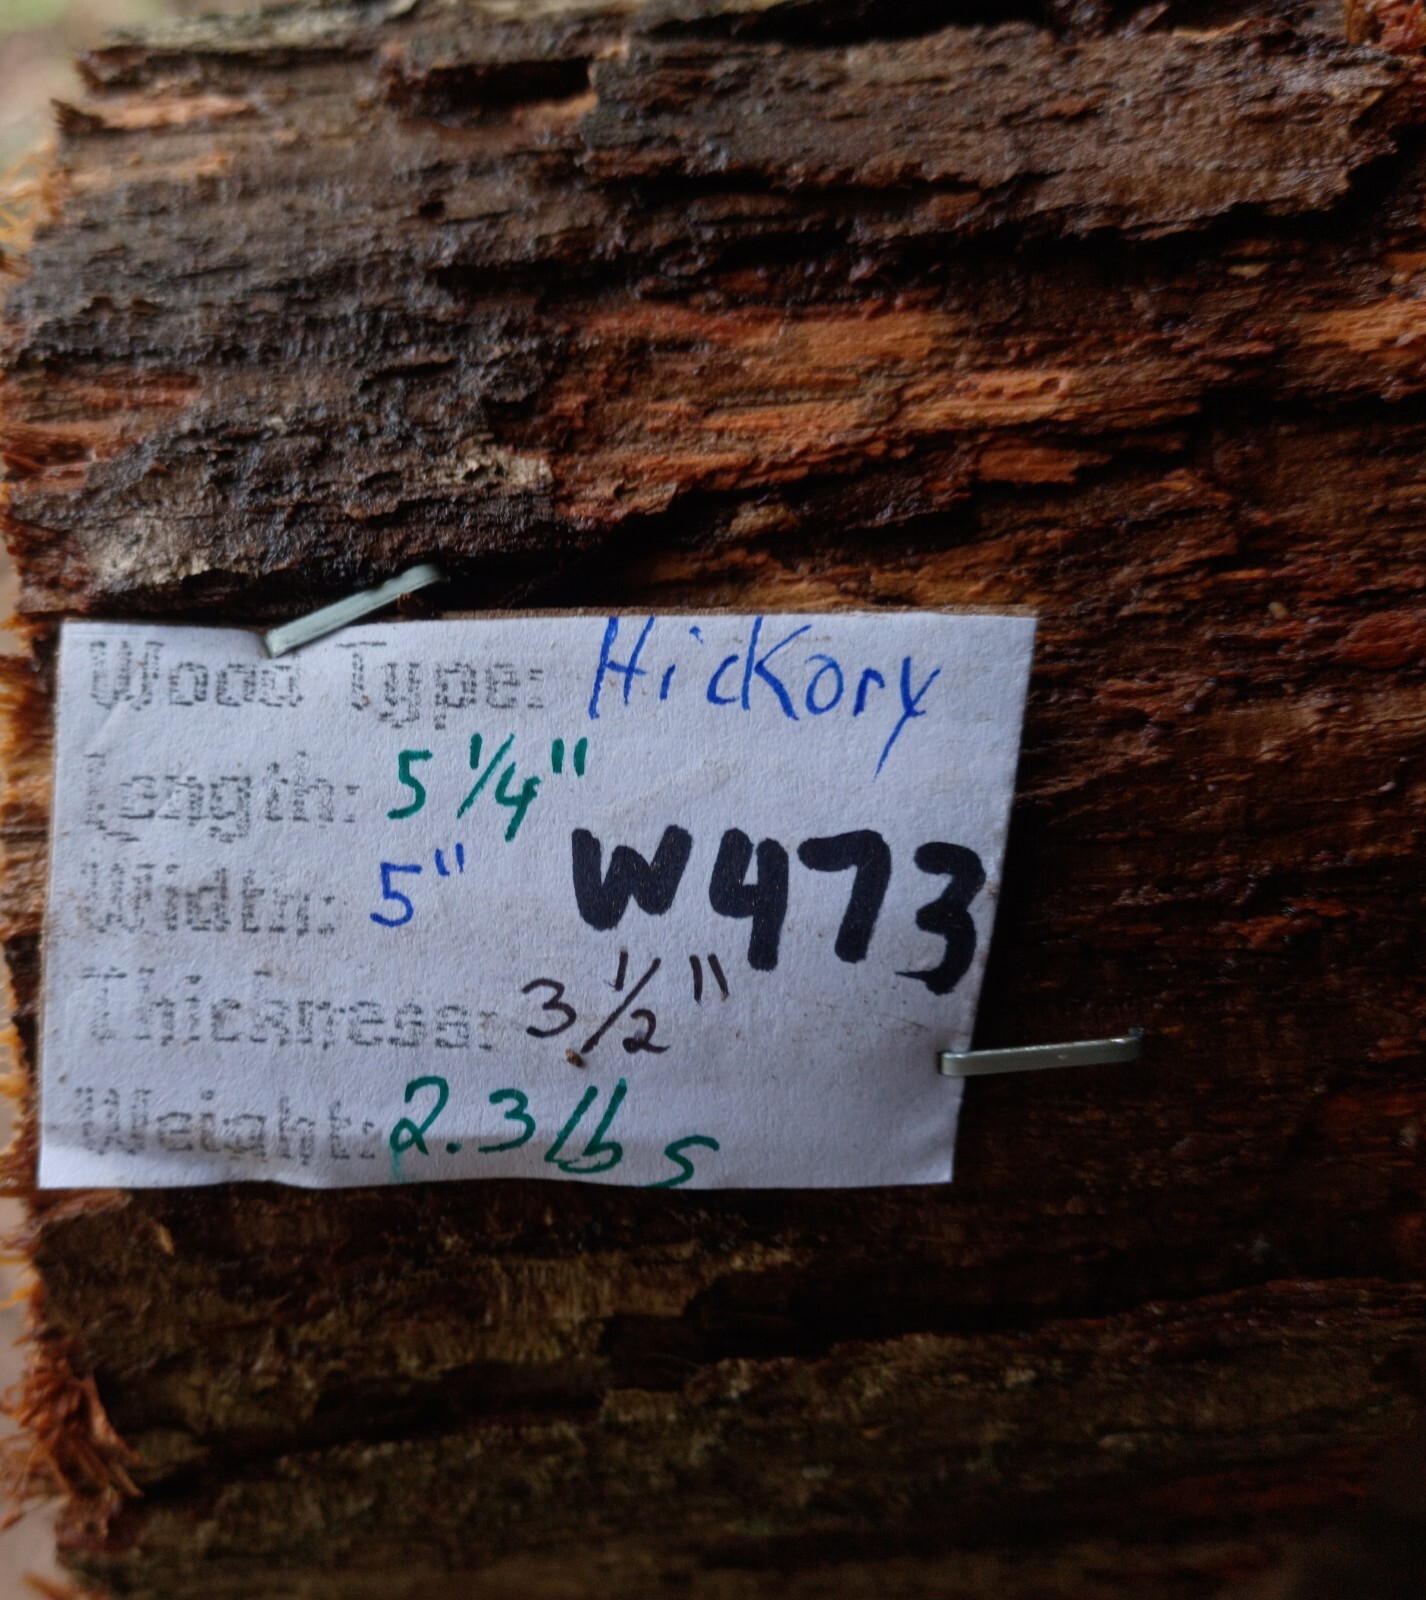 Wood Type: Hickory
Length: 5 1/4"
Width: 5"
W473
Thickness: 3 1/2"
Weight: 2.3 lbs